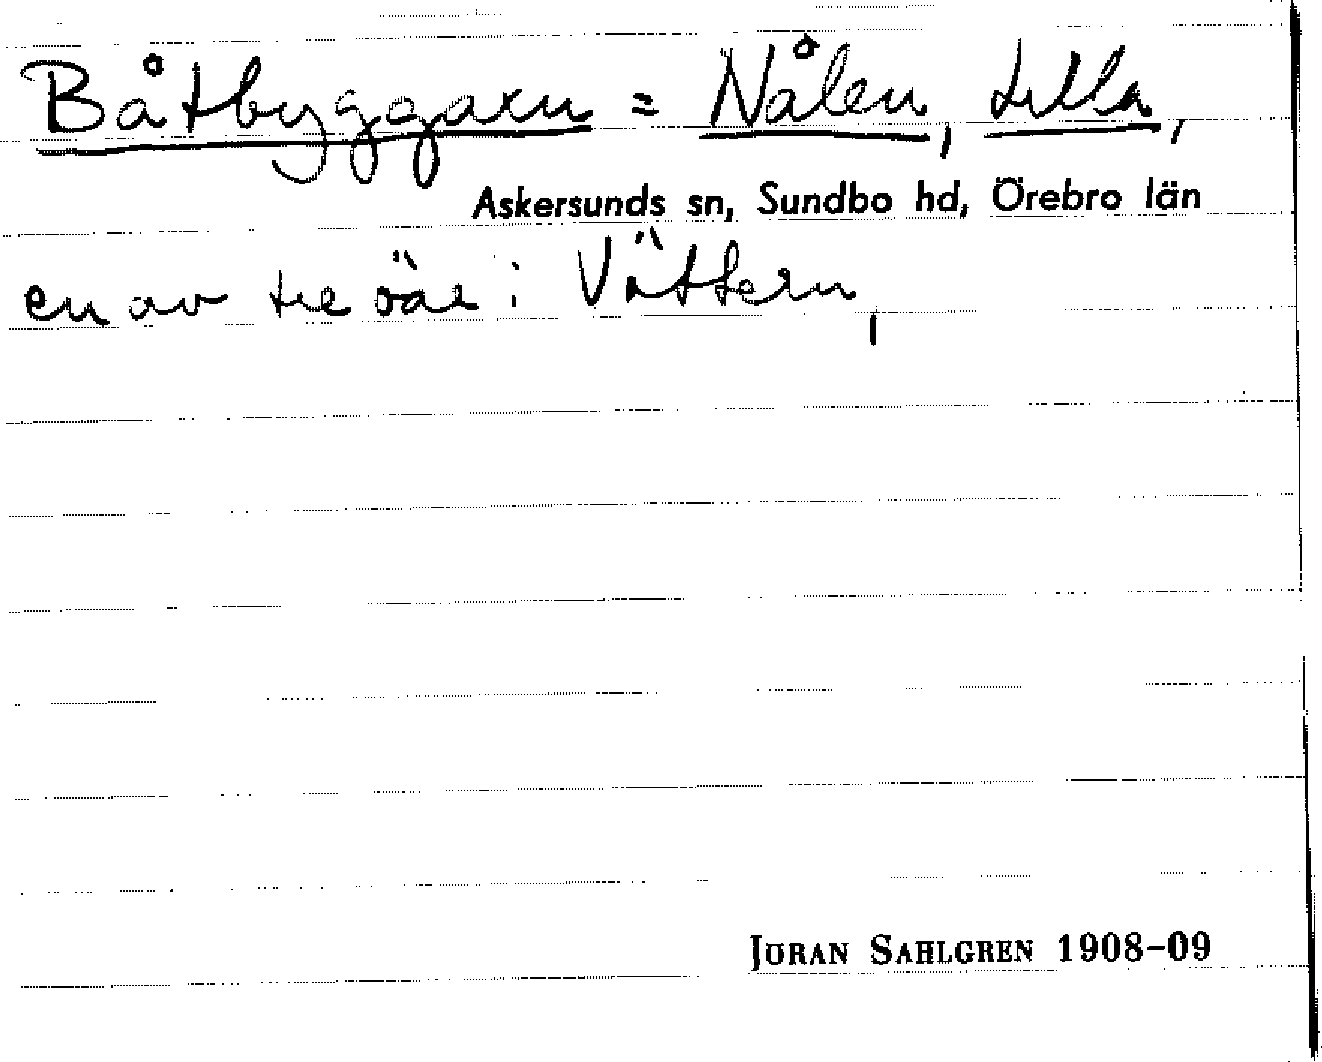 Båtbyggaren = Nålen, Lilla,
Askersunds sn, Sundbo hd, Örebro län
en av tre öar i Vättern,
JÖRAN SAHLGREN 1908–09